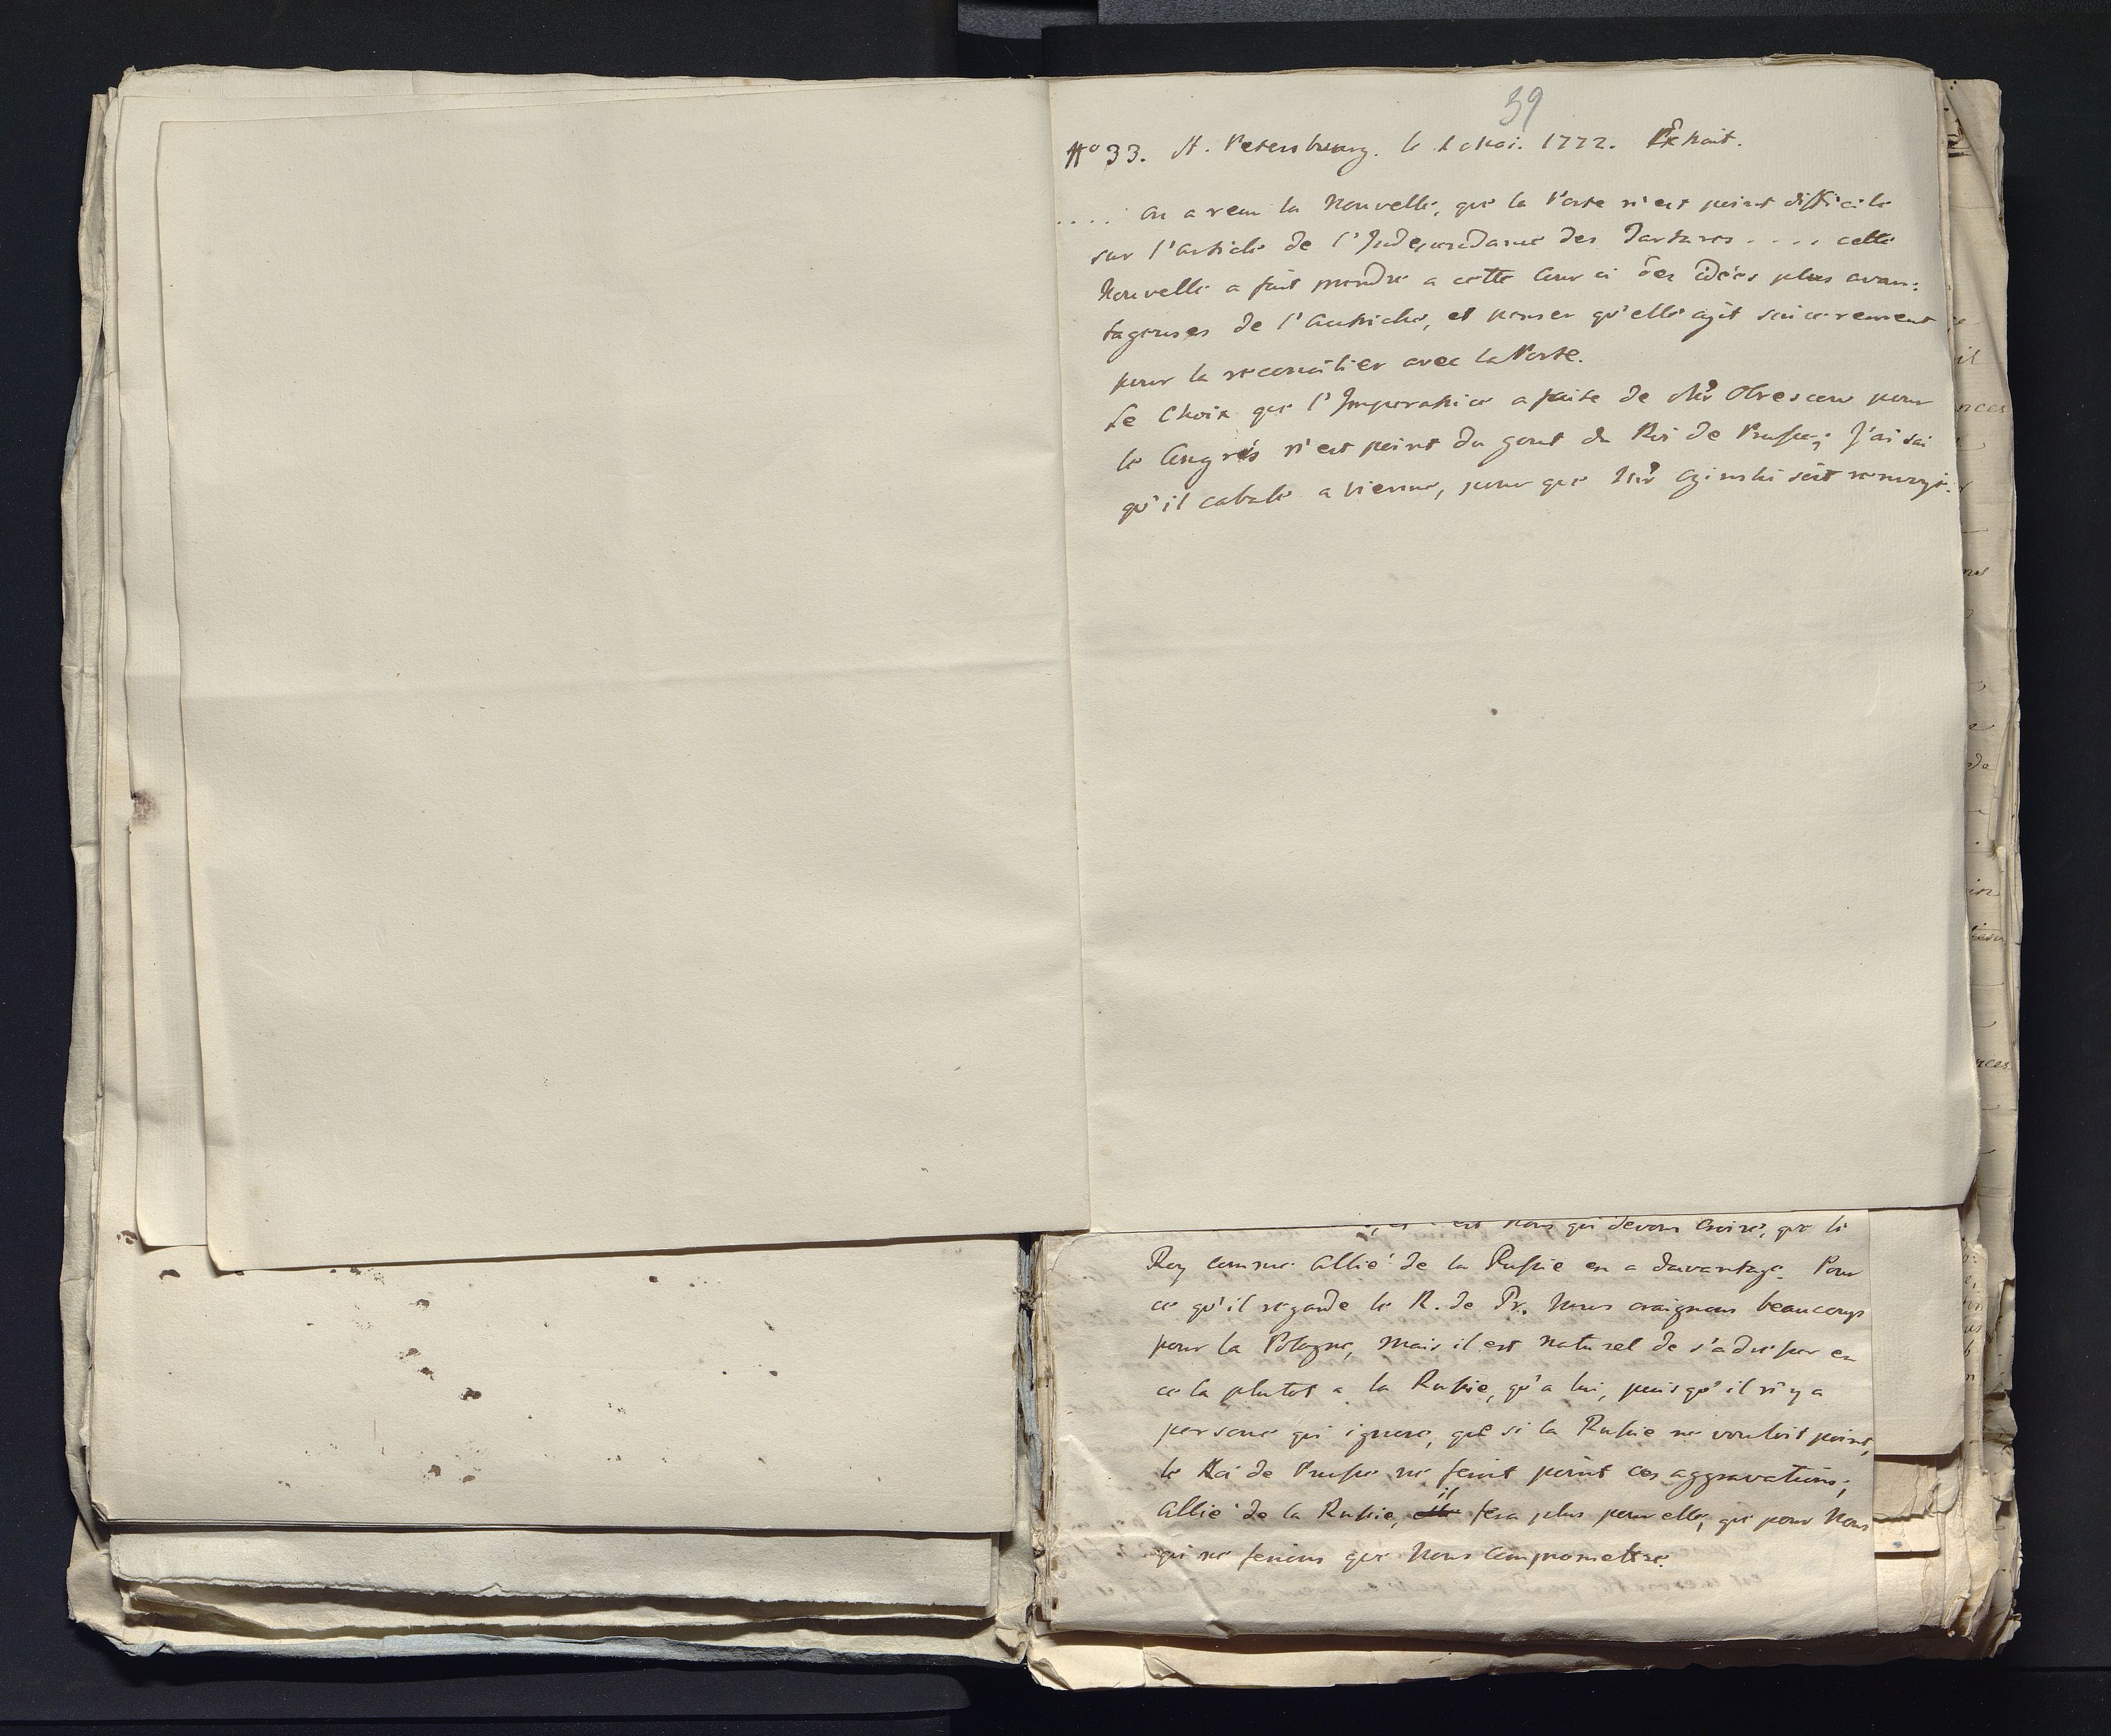 39
N° 33. St. Petersbourg. le 1 Mai. 1772. Extrait.
.... on a recu la Nouvelle, que la Porte n'est point difficile
sur l'article de l'Independance des Tartares .... cette
Nouvelle a fait prendre a cette Cour ci des idées plus avan:
tageuses de l'Autriche, et penser qu'elle agit sincerement
pour la reconcilier avec la Porte.
Le Choix que l'Imperatrice a faite de Mr Obrescow pour
le Congrés n'est point du gout du Roi de Prusse; j'ai sai
qu'il cabale a Vienne, pour que Mr Oginski soit renvoyé.
est Nous qui devons Croire, que le
Roy comme Allié de la Russie en a davantage. Pour
ce qu'il regarde le R. de Pr. Nous craignons beaucoup
pour la Pologne, Mais il est naturel de s'adresser en
ce la plutot a la Russie, qu'a lui, puisqu'il n'y a
persone qui ignore, que si la Russie ne vouloit point,
le Roi de Prusse ne feroit point ces aggravations;
Allié de la Russie, il fera plus pour elle, que pour Nous
qui ne ferions que Nous Compromettre.